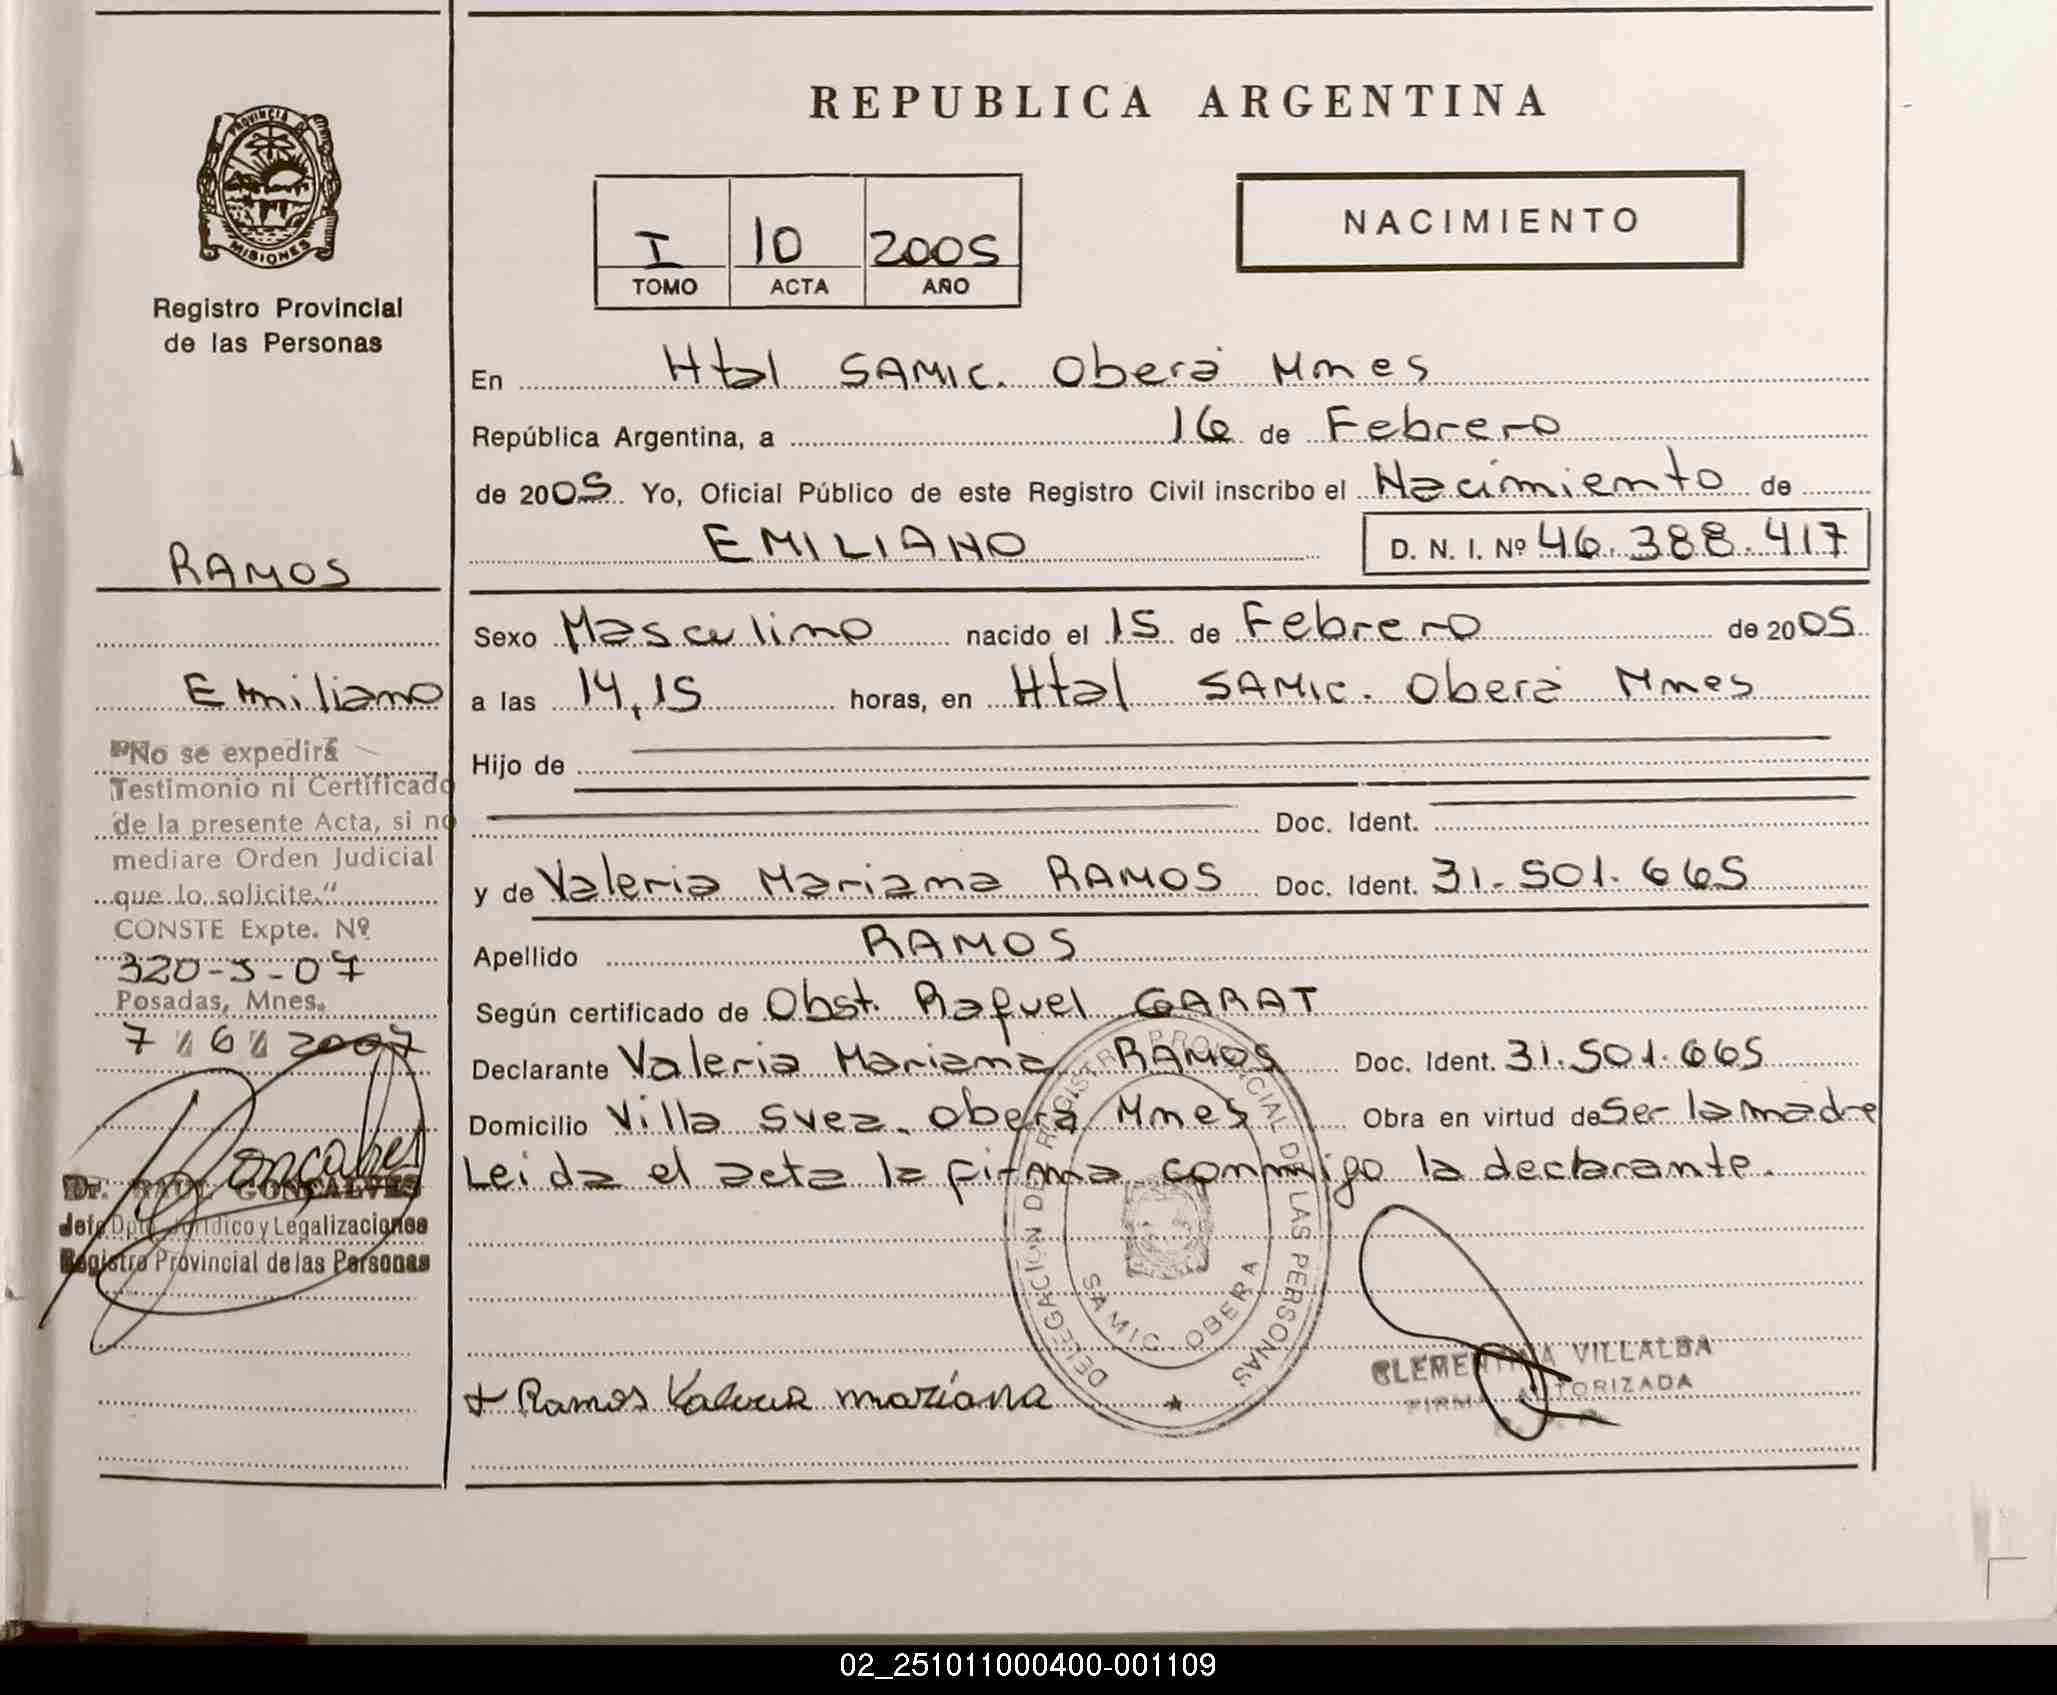 REPUBLICA ARGENTINA
PROVINCIA DE
MISIONES
Registro Provincial
de las Personas
I 10 2005
TOMO ACTA AÑO
NACIMIENTO
En Htal SAMIC. Oberá Mnes
República Argentina, a 16 de Febrero
de 2005 Yo, Oficial Público de este Registro Civil inscribo el Nacimiento de
EMILIANO D. N. I. Nº 46.388.417
RAMOS
Emiliano
Sexo Masculino nacido el 15 de Febrero de 2005
a las 14,15 horas, en Htal SAMIC. Oberá Mnes
Hijo de
Doc. Ident.
y de Valeria Mariana RAMOS Doc. Ident. 31.501.665
Apellido RAMOS
Según certificado de Obst. Raquel GARAT
Declarante Valeria Mariana RAMOS Doc. Ident. 31.501.665
Domicilio Villa Svea. Oberá Mnes Obra en virtud de Ser la madre
Leida el acta la firma conmigo la declarante.
"No se expedirá
Testimonio ni Certificado
de la presente Acta, si no
mediare Orden Judicial
que lo solicite."
CONSTE Expte. Nº
320-S-07
Posadas, Mnes.
7 / 6 / 2007
Goncalves
Dr. RAUL GONCALVES
Jefe Dpto. Jurídico y Legalizaciones
Registro Provincial de las Personas
DELEGACION DEL REGISTRO PROVINCIAL DE LAS PERSONAS
SAMIC - OBERA
+ Ramos Valeria mariana
CLEMENTINA VILLALBA
FIRMA AUTORIZADA
02_251011000400-001109